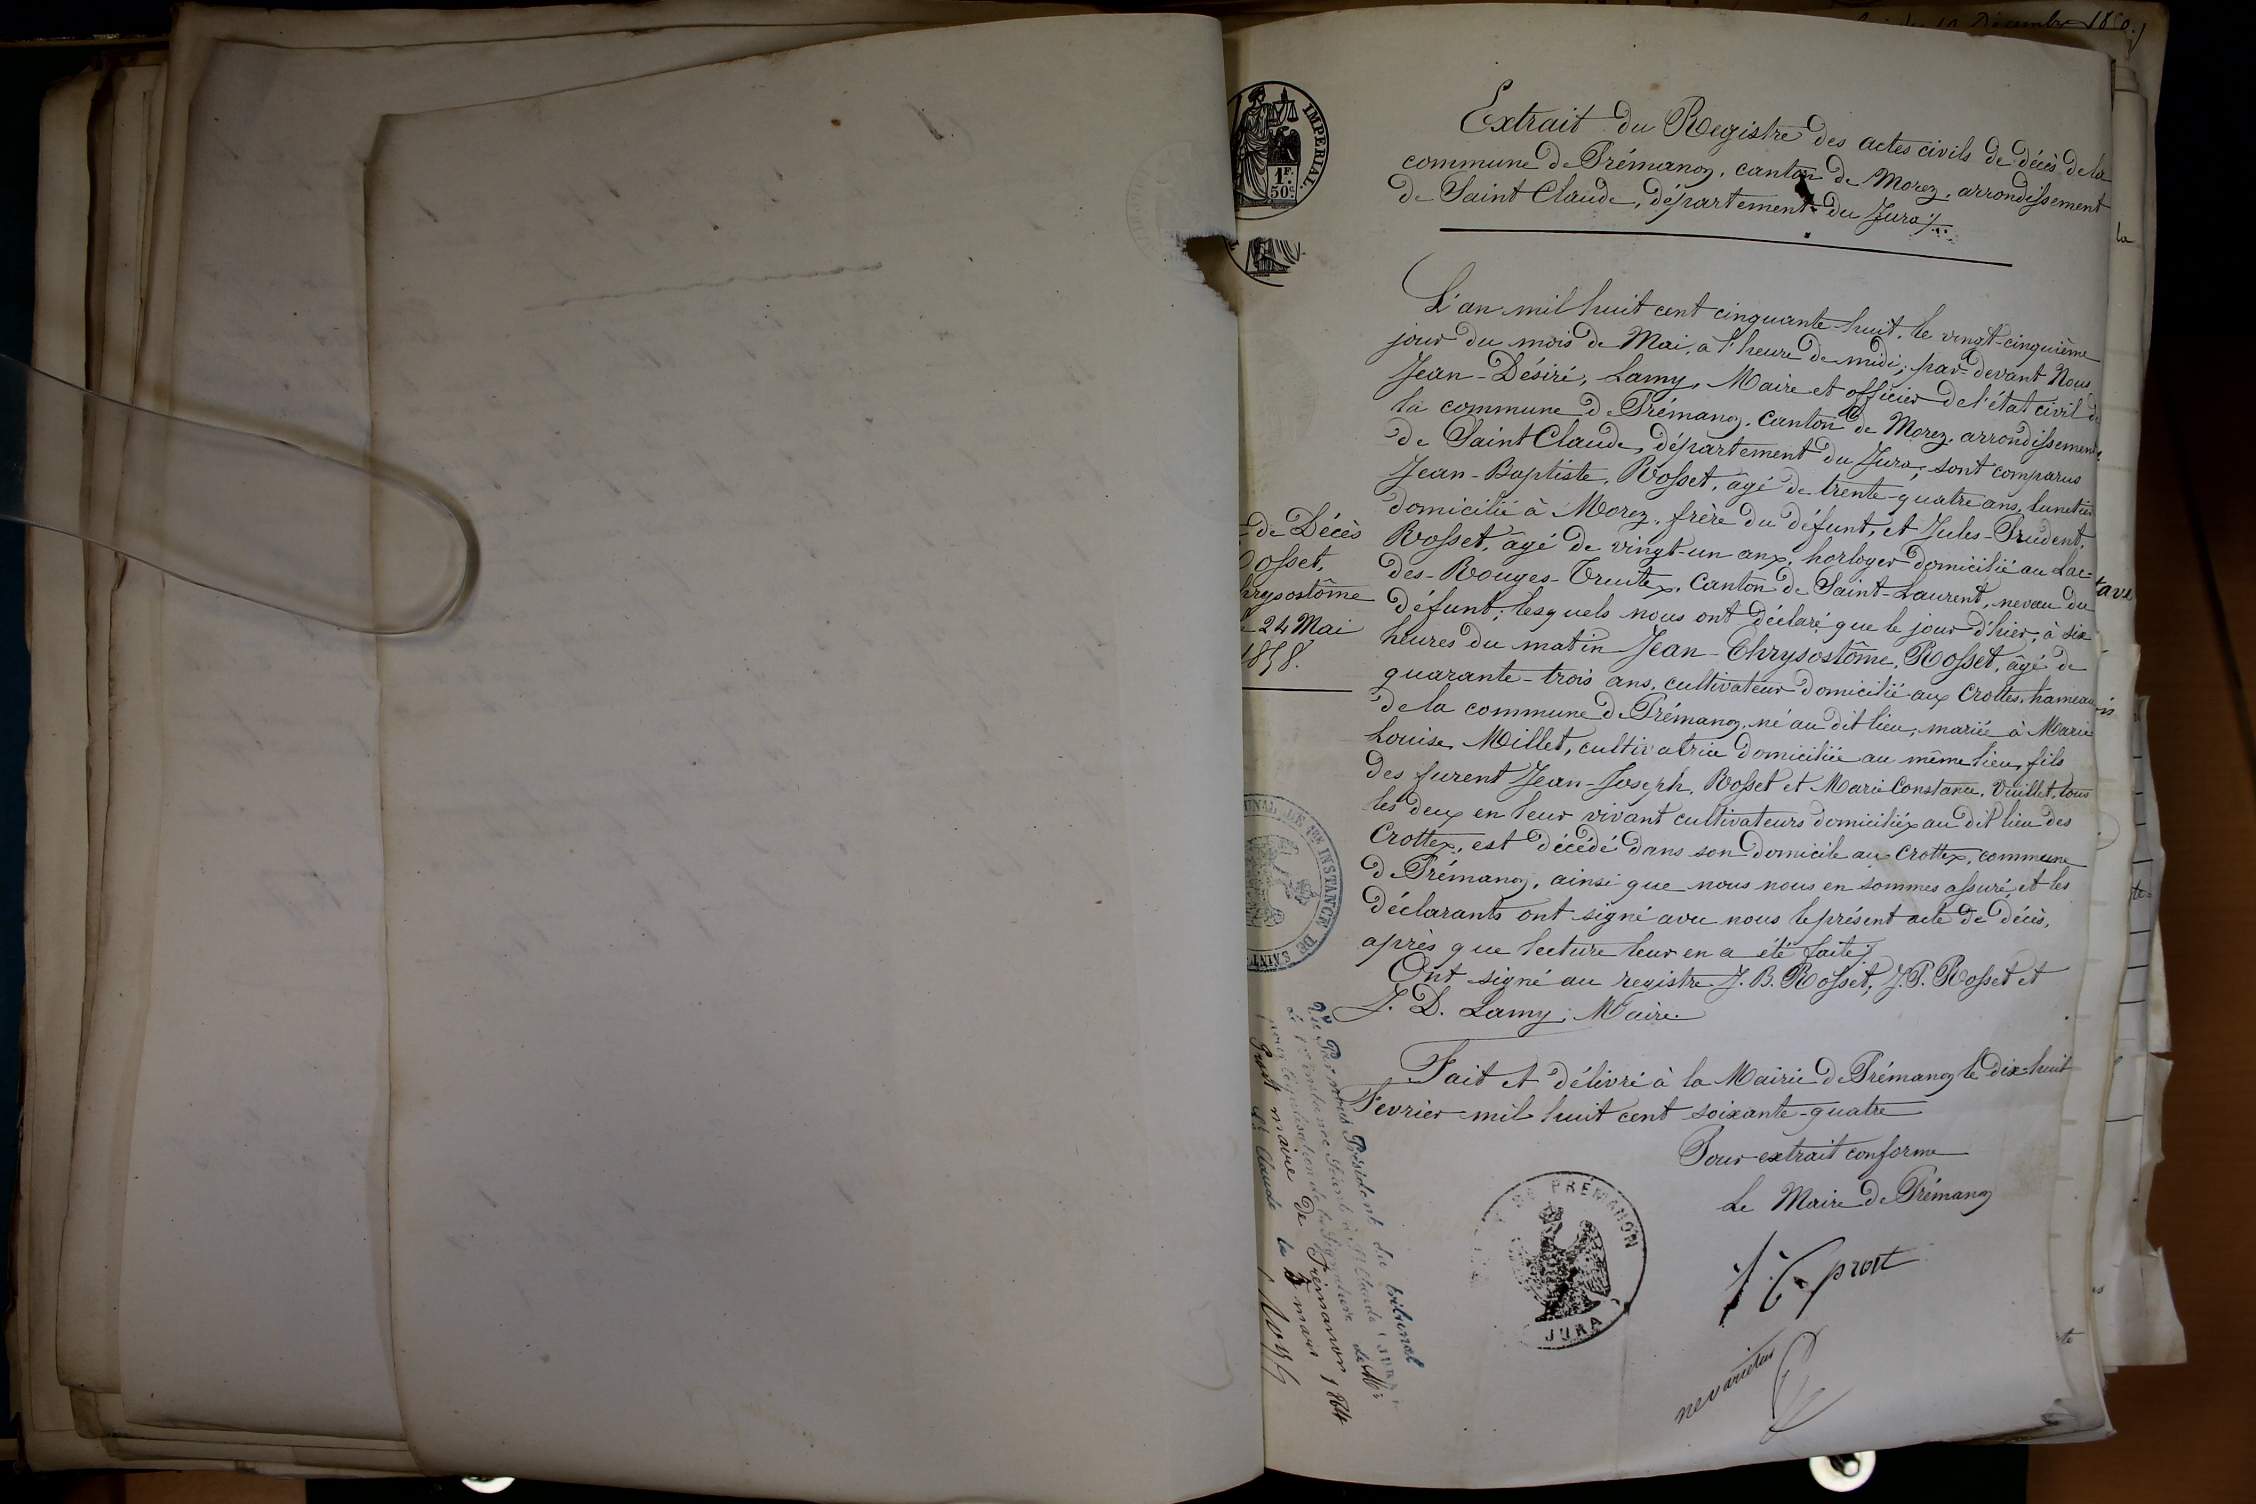 Décembre 1850
IMPERIAL.
1F.
50c.
Extrait du Registre des actes civils de décès de la
commune de Prémanon, canton de Morez, arrondissement
de Saint Claude, département du Jura.
L'an mil huit cent cinquante-huit, le vingt-cinquième
jour du mois de Mai, à l'heure de midi; par-devant Nous
Jean-Désiré, Lamy, Maire et officier de l'état civil de
la commune de Prémanon, canton de Morez, arrondissement
de Saint Claude, département du Jura, sont comparus
Jean-Baptiste, Rosset, agé de trente-quatre ans, lunetier
domicilié à Morez, frère du défunt, et Jules-Prudent,
Rosset, âgé de vingt-un ans, horloger domicilié au Lac-
des-Rouges-Truites, Canton de Saint-Laurent, neveu du
défunt; lesquels nous ont déclaré que le jour d'hier, à six
heures du matin Jean-Chrysostôme, Rosset, âgé de
quarante-trois ans, cultivateur domicilié aux Crottes, hameau
de la commune de Prémanon, né au dit lieu, marié à Marie
Louise, Millet, cultivatrice domiciliée au même lieu, fils
des furent Jean-Joseph, Rosset et Marie Constance, Vuillet, tous
les deux en leur vivant cultivateurs domiciliés au dit lieu des
Crottes, est décédé dans son domicile au Crottes, commune
de Prémanon, ainsi que nous nous en sommes assuré, et les
déclarants ont signé avec nous le présent acte de décès,
après que lecture leur en a été faite.
Ont signé au registre J. B. Rosset, J. P. Rosset et
J. D. Lamy, Maire
Fait et délivré à la Mairie de Prémanon le dix-huit
Fevrier mil huit cent soixante-quatre
Pour extrait conforme
Le Maire de Prémanon
prost
ne varietur
PRÉMANON
JURA
de Décès
osset,
hrysostôme
24 Mai
1858.
UNAL DE 1RE INSTANCE DE SAINT
Vu Par nous Président du tribunal
de 1re instance séant à St Claude (Jura)
pour légalisation de la signature de Mr
Prost maire de Prémanon
St Claude le 3 mars 1864
la